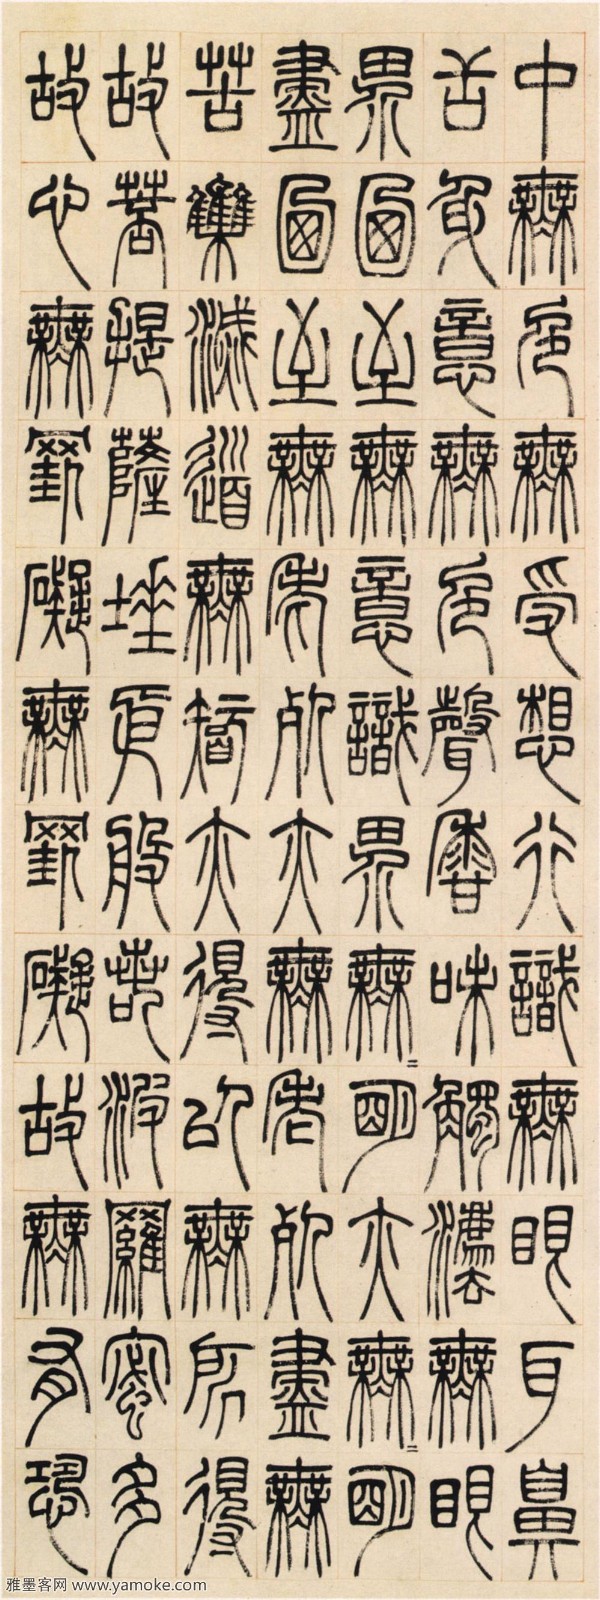 中無色無受想行識無眼耳鼻
舌身意無色聲香味觸法無眼
界乃至無意識界無〻明亦無〻明
盡乃至無老死亦無老死盡無
苦集滅道無智亦得以無所得
故菩提薩埵依般若波羅蜜多
故心無罣礙無罣礙故無有恐
雅墨客网 www.yamoke.com